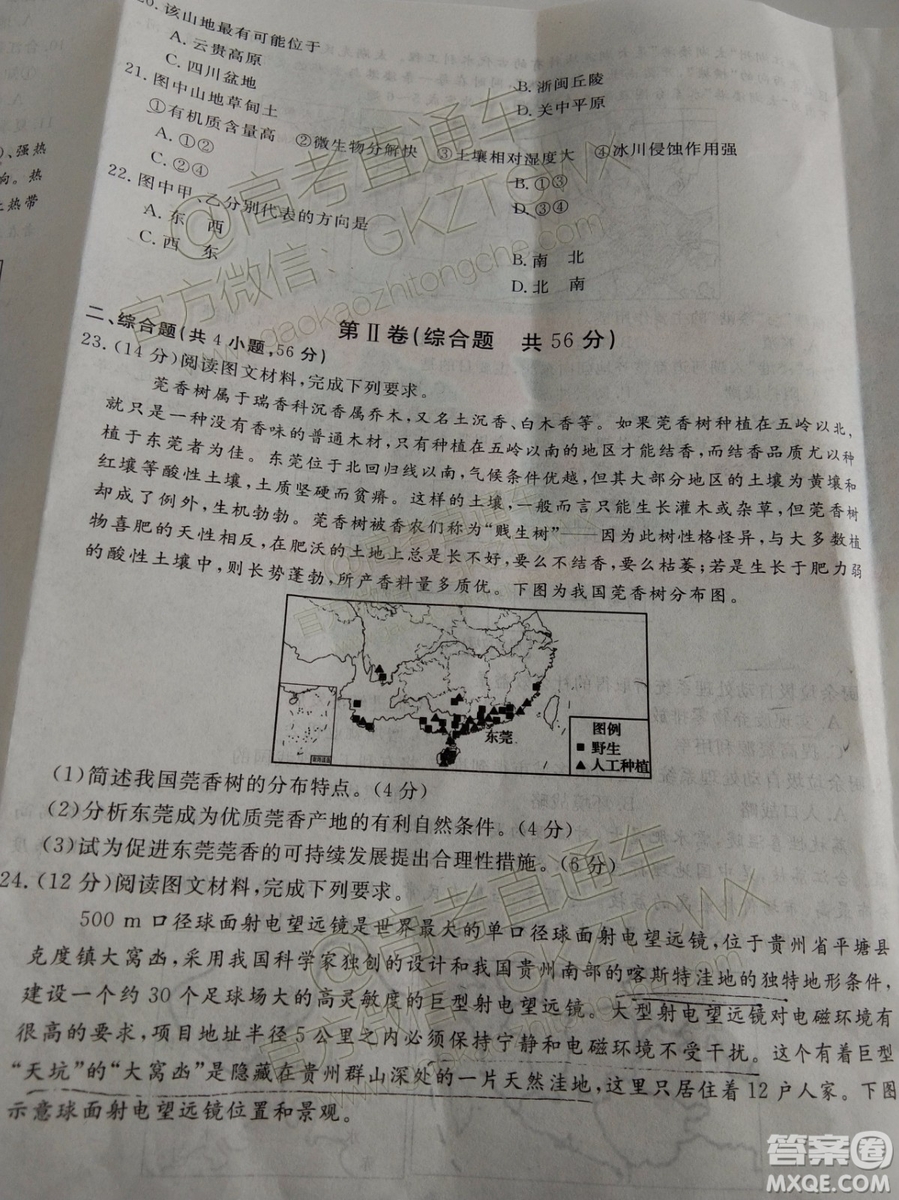 20. 该山地最有可能位于
A. 云贵高原
B. 浙闽丘陵
C. 四川盆地
D. 关中平原
21. 图中山地草甸土
①有机质含量高 ②微生物分解快 ③土壤相对湿度大 ④冰川侵蚀作用强
A. ①②
B. ①③
C. ②④
D. ③④
22. 图中甲、乙分别代表的方向是
A. 东 西
B. 南 北
C. 西 东
D. 北 南
第Ⅱ卷(综合题 共56分)
二、综合题(共4小题,56分)
23. (14分)阅读图文材料,完成下列要求。
莞香树属于瑞香科沉香属乔木,又名土沉香、白木香等。如果莞香树种植在五岭以北,
就只是一种没有香味的普通木材,只有种植在五岭以南的地区才能结香,而且品质尤以种
植于东莞者为佳。东莞位于北回归线以南,气候条件优越,但其大部分地区的土壤为黄壤和
红壤等酸性土壤,土质坚硬而贫瘠。这样的土壤,一般而言只能生长灌木或杂草,但莞香树
却成了例外,生机勃勃。莞香树被香农们称为“贱生树”——因为此树性格怪异,与大多数植
物喜肥的天性相反,在肥沃的土地上总是长不好,要么不结香,要么枯萎;若是生长于肥力弱
的酸性土壤中,则长势蓬勃,所产香料量多质优。下图为我国莞香树分布图。
东莞
图例
■野生
▲人工种植
(1)简述我国莞香树的分布特点。(4分)
(2)分析东莞成为优质莞香产地的有利自然条件。(4分)
(3)试为促进东莞莞香的可持续发展提出合理性措施。(6分)
24. (12分)阅读图文材料,完成下列要求。
500 m口径球面射电望远镜是世界最大的单口径球面射电望远镜,位于贵州省平塘县
克度镇大窝凼,采用我国科学家独创的设计和我国贵州南部的喀斯特洼地的独特地形条件,
建设一个约30个足球场大的高灵敏度的巨型射电望远镜。大型射电望远镜对电磁环境有
很高的要求,项目地址半径5公里之内必须保持宁静和电磁环境不受干扰。这个有着巨型
“天坑”的“大窝凼”是隐藏在贵州群山深处的一片天然洼地,这里只居住着12户人家。下图
示意球面射电望远镜位置和景观。
、强热
向。热
比热带
@高考直通车
官方微信:GKZTCWX
www.gaokaozhitongche.com
答案圈
MXQE.COM